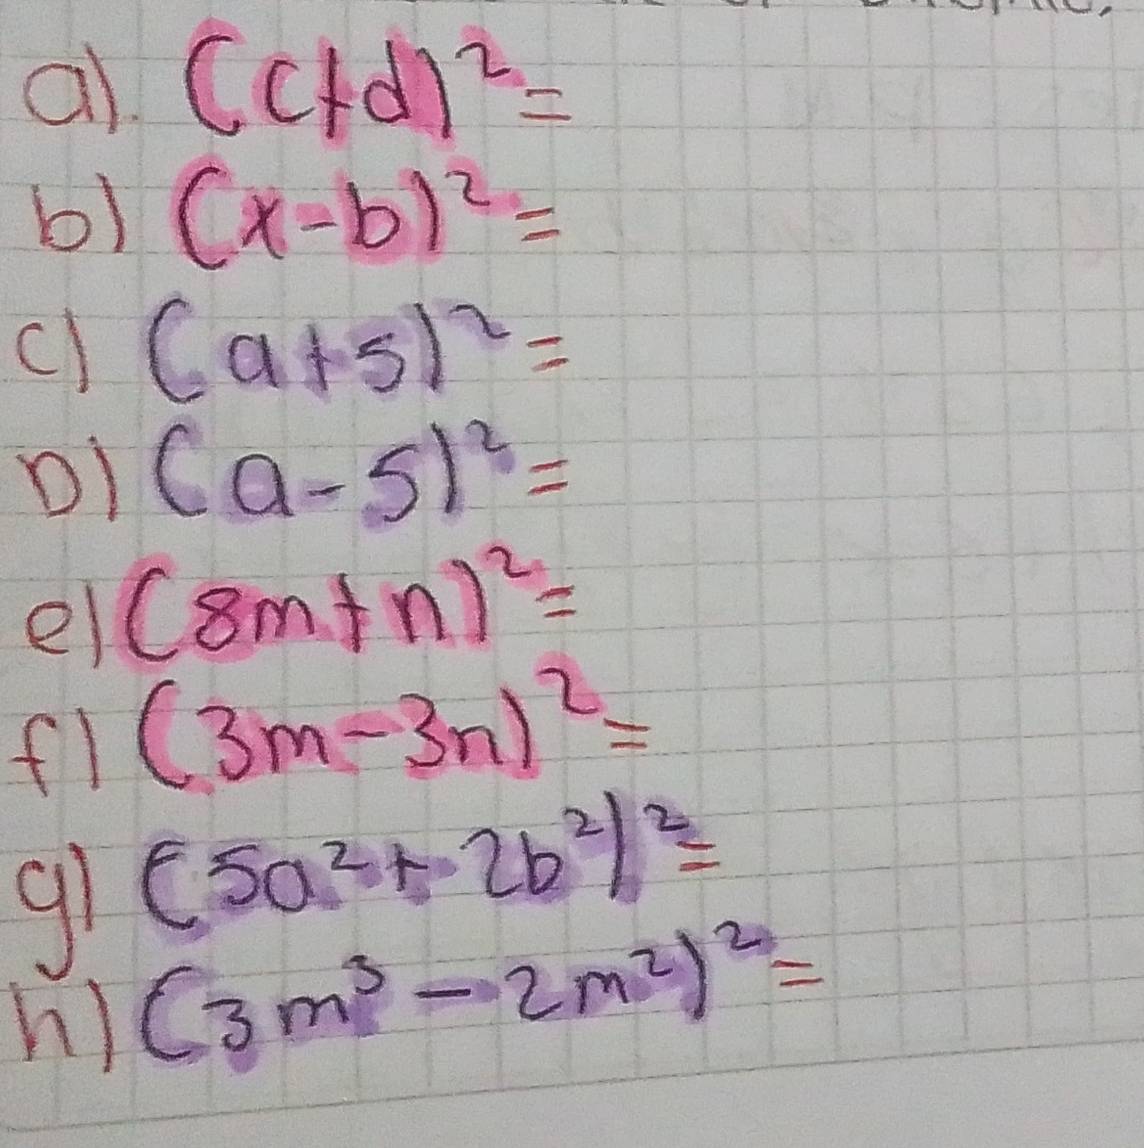 a). (c+d)² =
b) (x-b)² =
c) (a+5)² =
D) (a-5)² =
e) (8m+n)² =
f) (3m-3n)² =
g) (5a²+2b²)² =
h) (3m³-2m²)² =